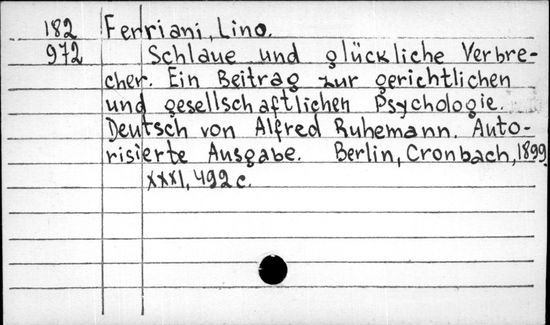 182 Ferriani, Lino.
972 Schlaue und glückliche Verbre-
cher. Ein Beitrag zur gerichtlichen
und gesellschaftlichen Psychologie.
Deutsch von Alfred Ruhemann. Auto-
risierte Ausgabe. Berlin, Cronbach, 1899.
XXXI, 492 c.